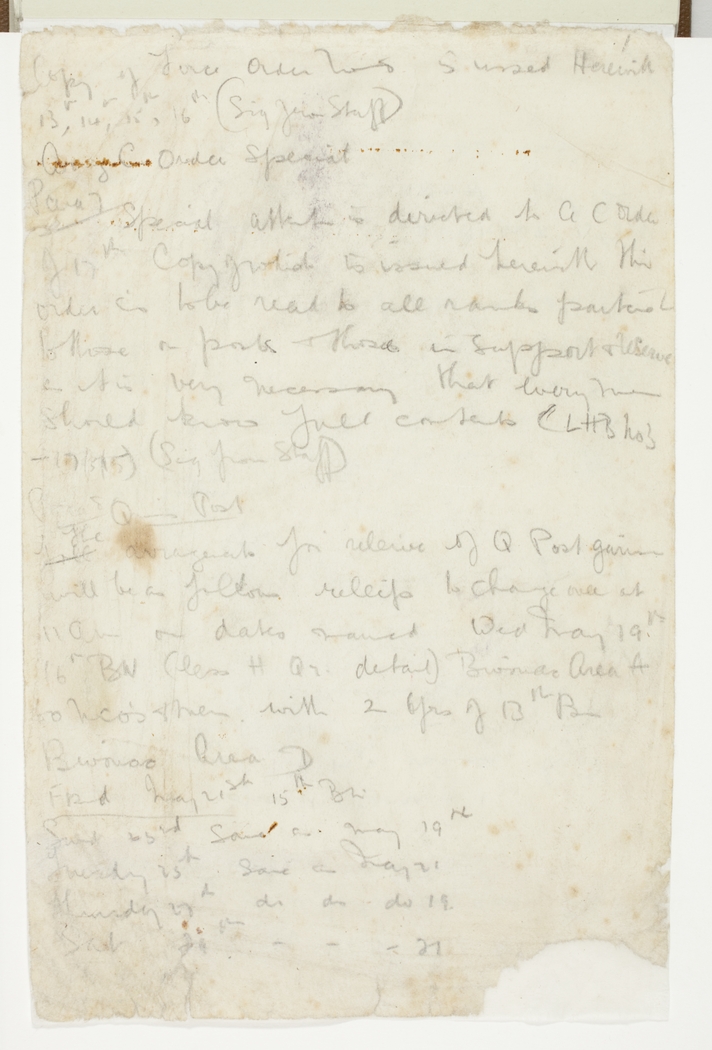 Copy of Force Order No is issued Herewith
13th, 14th, 15th, 16th (Sig from Staff)
Order Special
Para
Special attent is directed to A C Order
of 17th Copy of which is issued herewith this
order is to be read to all ranks particul
to those on posts & those in Support & Reserve
as it is very necessary that every man
should know full contents (LHB No 3
- 17/5/15) (Sig from Staff)
Q Post
The arrangements for relieve of Q Post garrison
will be as follows reliefs to change over at
11 am on dates named Wed May 19th
16th BN (less H Qrs. detail) Bivouac Area A
60 NCO's & men with 2 of 13th Bn
Bivouac Area D
Frid May 21st 15th Bn
23rd Same as May 19th
Tuesday 25th Same as May 21
Thursday 27th do do do 19.
Sat 29th - - = 21